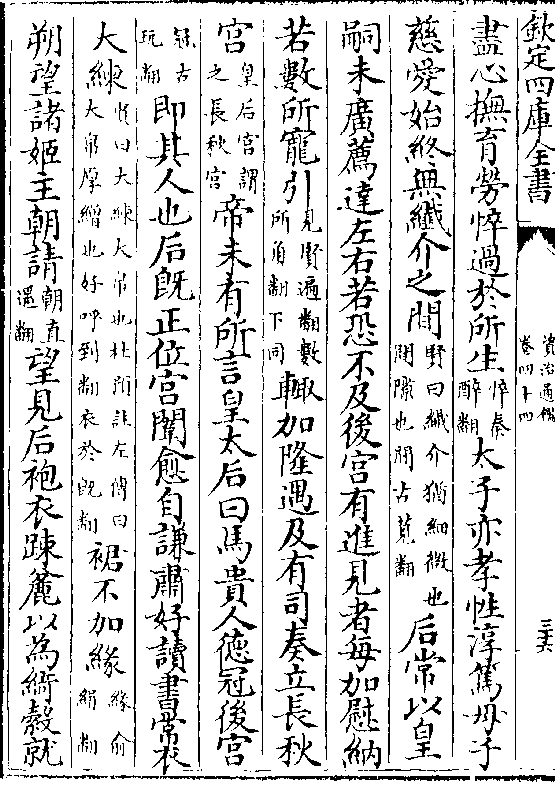 欽定四庫全書
資治通鑑
卷四十四
三六
盡心撫育勞悴過於所生悴秦醉翻太子亦孝性淳篤母子
慈愛始終無纖介之間賢曰纖介猶細微也間隙也間古莧翻后常以皇
嗣未廣薦達左右若恐不及後宮有進見者每加慰納
若數所寵引見賢遍翻數所角翻下同輙加隆遇及有司奏立長秋
宮皇后宮謂之長秋宮帝未有所言皇太后曰馬貴人德冠後宮
冠古玩翻即其人也后既正位宮闈愈自謙肅好讀書常衣
大練賢曰大練大帛也杜預註左傳曰大帛厚繒也好呼到翻衣於既翻裾不加緣緣俞絹翻
朔望諸姬主朝請朝直遥翻望見后袍衣踈麄以為綺縠就